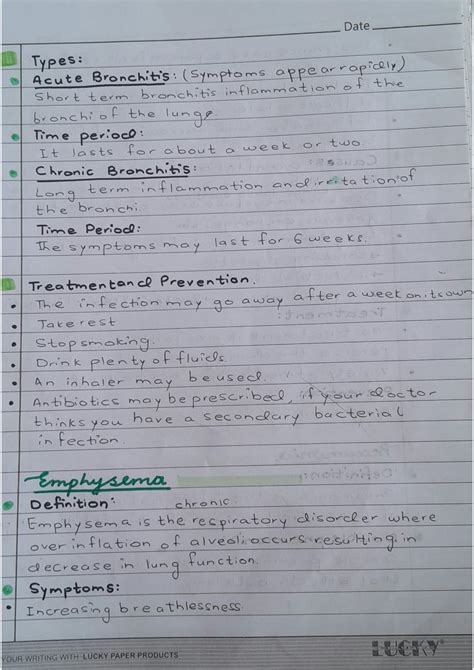 Date
Types:
Acute Bronchitis: (Symptoms appear rapidly)
Short term bronchitis inflammation of the
bronchi of the lungs.
Time period:
It lasts for about a week or two.
Chronic Bronchitis:
Long term inflammation and irritation of
the bronchi.
Time Period:
The symptoms may last for 6 weeks.
Treatment and Prevention.
The infection may go away after a week on its own
Take rest
Stop smoking.
Drink plenty of fluids.
An inhaler may be used.
Antibiotics may be prescribed, if your doctor
thinks you have a secondary bacterial
infection.
Emphysema
Definition: chronic
Emphysema is the respiratory disorder where
over inflation of alveoli occurs resulting in
decrease in lung function.
Symptoms:
Increasing breathlessness
YOUR WRITING WITH LUCKY PAPER PRODUCTS
LUCKY